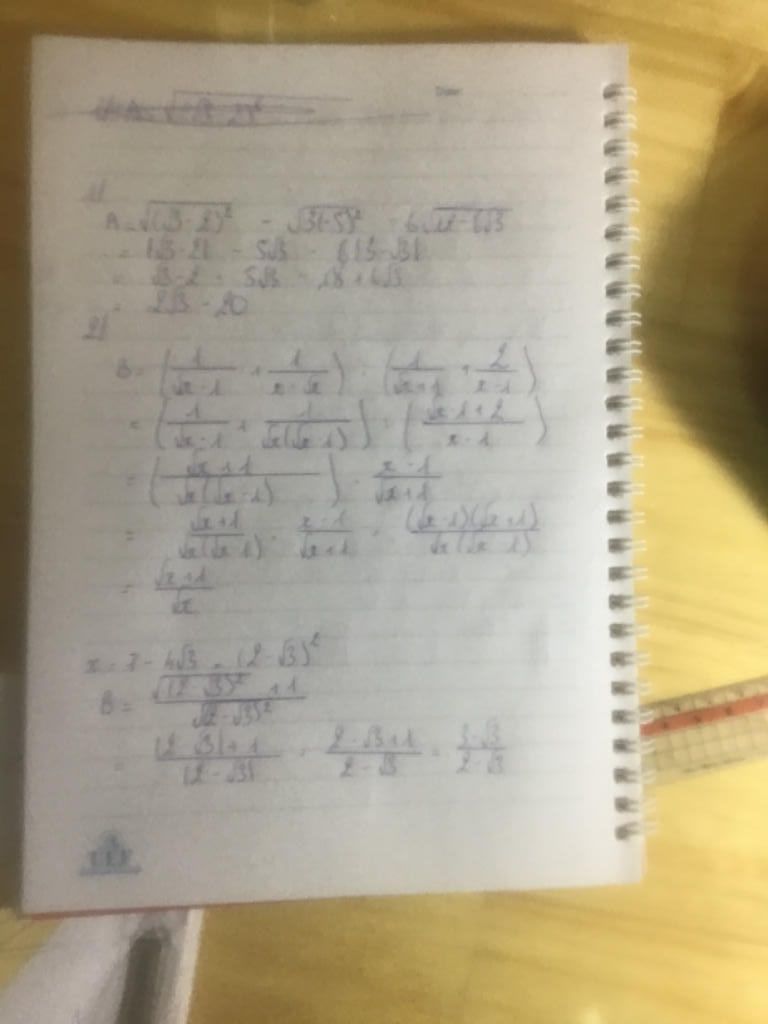 Date
1)
A = √(√3 - 2)² - √3(-5)² - 6√12 - 6√3
= |√3 - 2| - 5√3 - 6|3 - √3|
= √3 - 2 - 5√3 - 18 + 6√3
= 2√3 - 20
2)
B = (1/(√x - 1) + 1/(x - √x)) : (1/(√x + 1) + 2/(x - 1))
= (1/(√x - 1) + 1/(√x(√x - 1))) : ((√x - 1 + 2)/(x - 1))
= ((√x + 1)/(√x(√x - 1))) · (x - 1)/(√x + 1)
= (√x + 1)/(√x(√x - 1)) · (x - 1)/(√x + 1) = ((√x - 1)(√x + 1))/(√x(√x - 1))
= (√x + 1)/√x
x = 7 - 4√3 = (2 - √3)²
B = (√(2 - √3)² + 1)/√(2 - √3)²
= (|2 - √3| + 1)/|2 - √3| = (2 - √3 + 1)/(2 - √3) = (3 - √3)/(2 - √3)